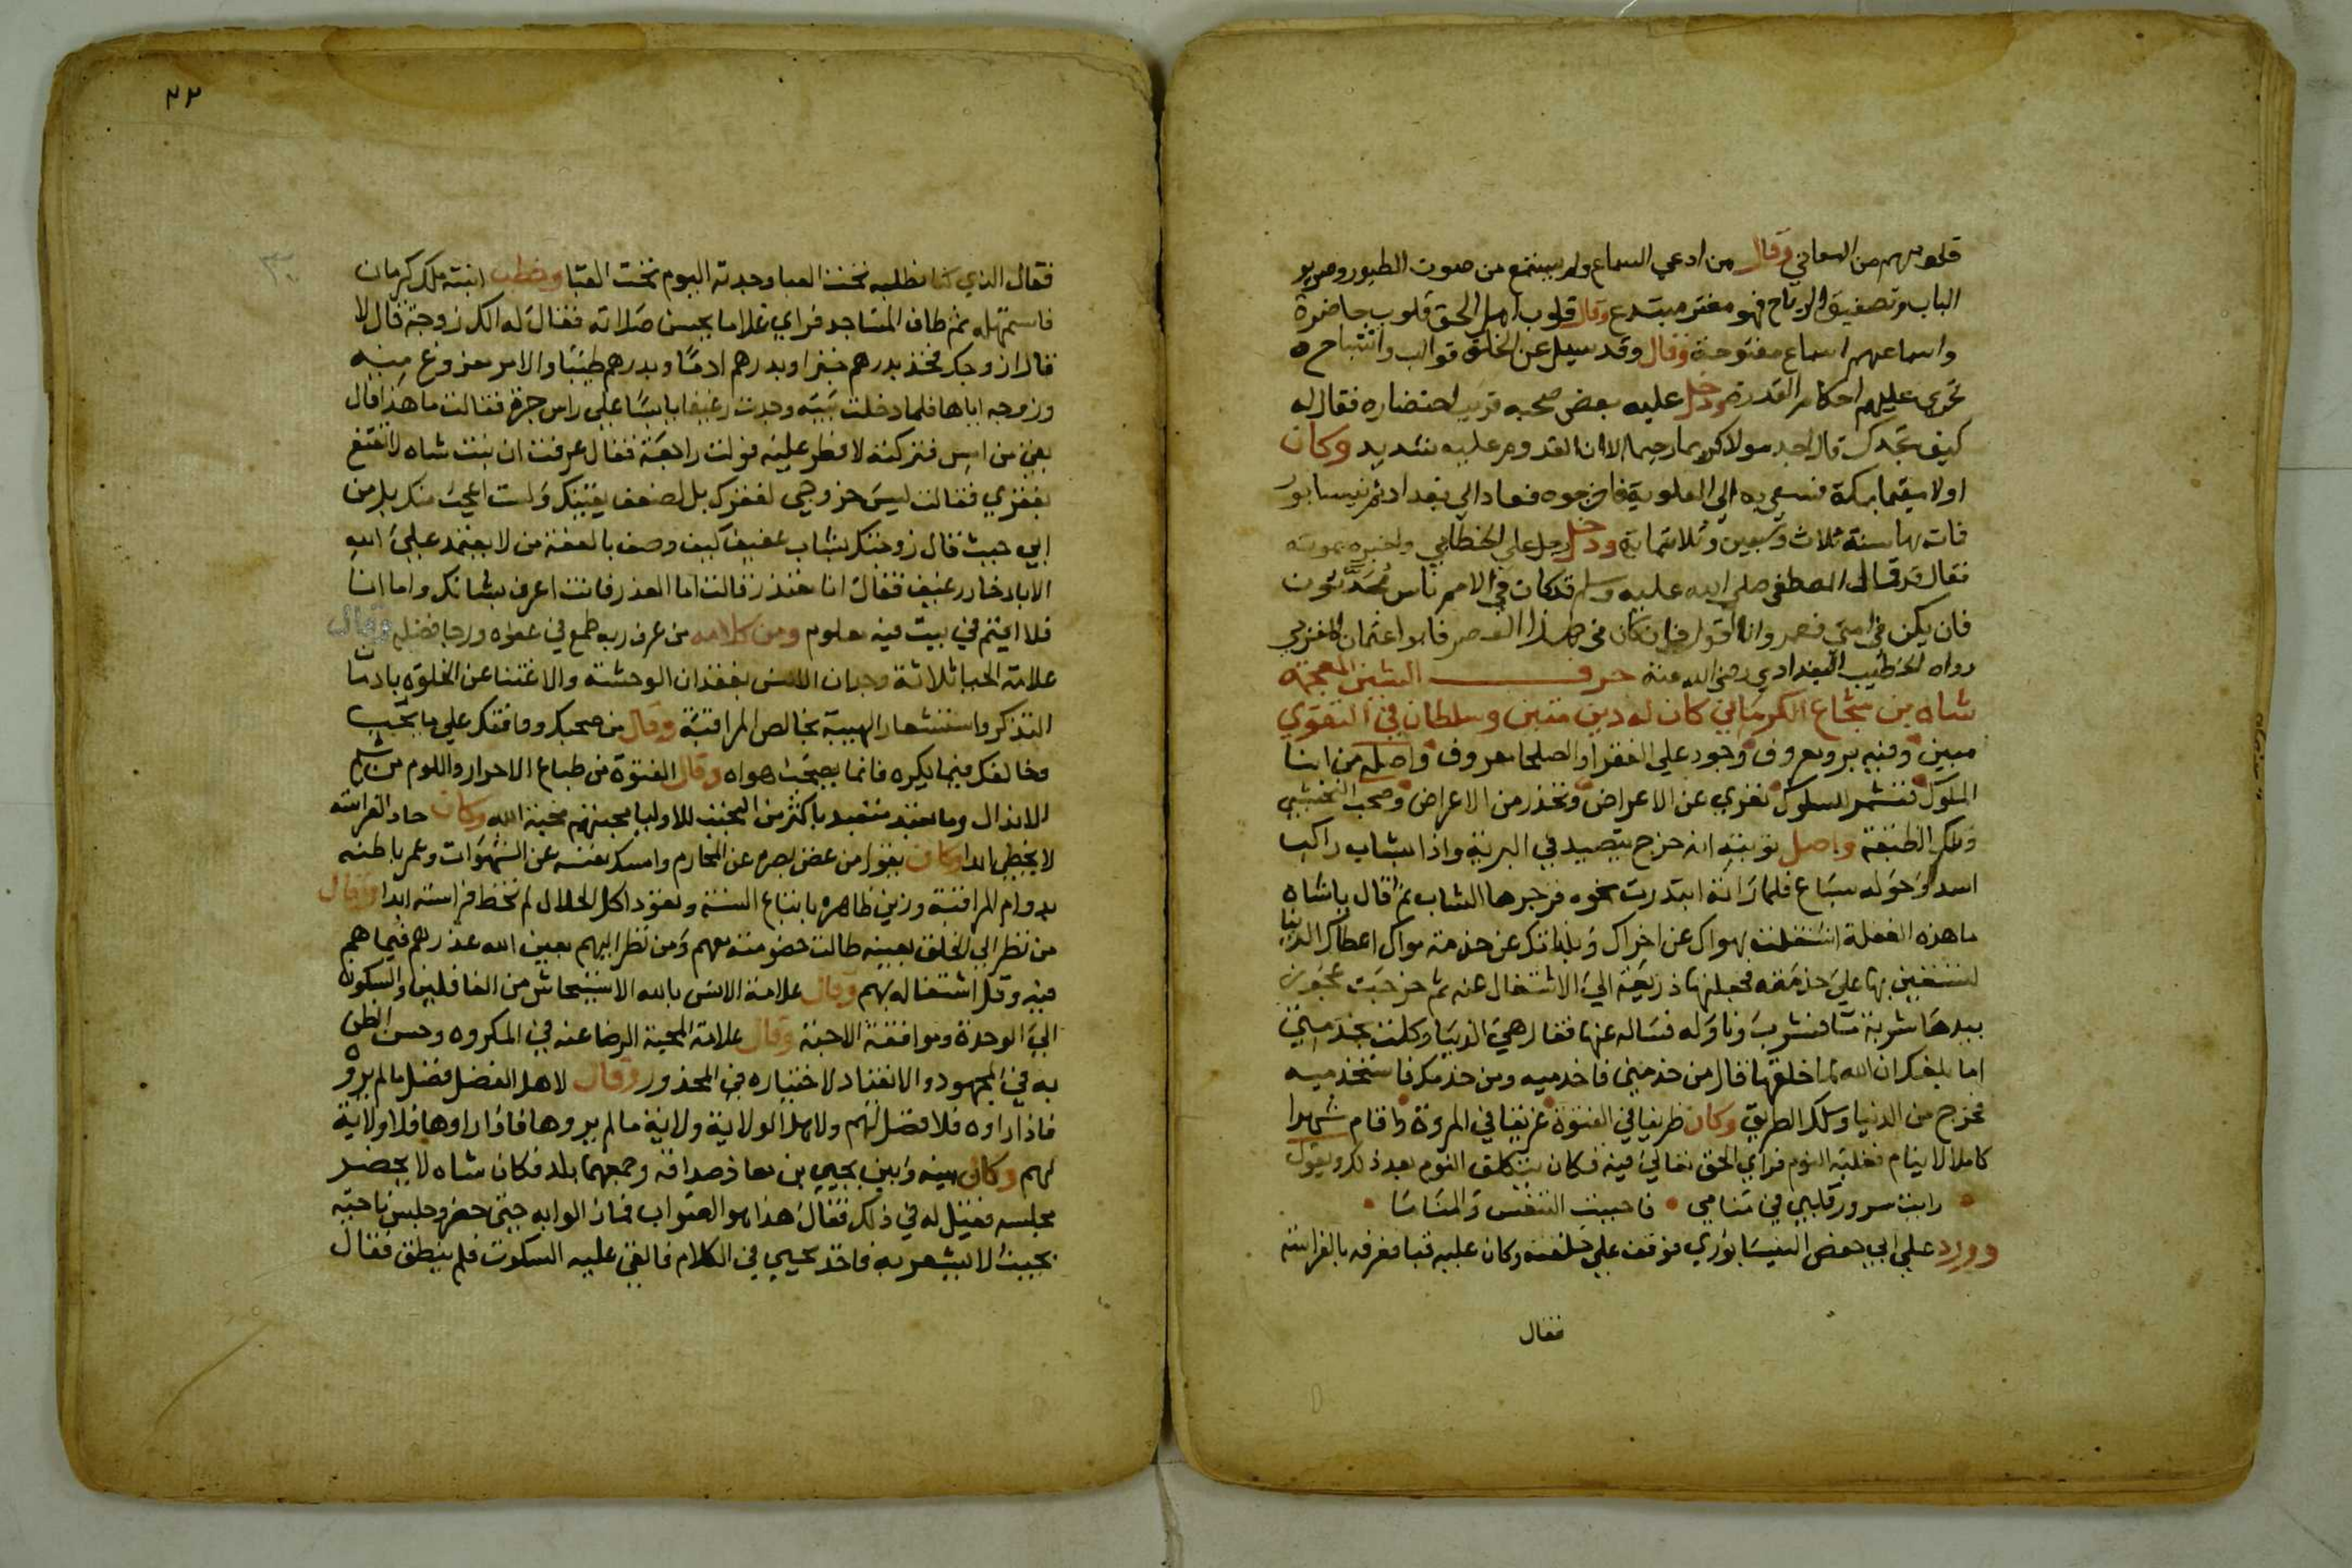 قلوبهم من المعاني وقال من ادعي السماع ولم يستمع من صوت الطيور وصرير
الباب وتصفيق الرياح فهو مفتر مبتدع وقال قلوب اهل الحق قلوب حاضرة
واسماعهم اسماع مفتوحة وقال وقد سيل عن الخلق قوالب واشباح
تجري عليهم احكام القدرة ودخل عليه بعض صحبه قريب احتضاره فقال له
كيف تجدك قال اجد مولا كريما رحيما الا ان القدوم عليه شديد وكان
اولا مقيما بمكة فسعي به الي العلوية فاخرجوه فعاد الي بغداد ثم نيسابور
فمات بها سنة ثلاث وسبعين وثلاثماية ودخل رجل علي الخطابي واخبره بموته
فقال قد قال المصطفي صلي الله عليه وسلم قد كان في الامم ناس محدثون
فان يكن في امتي فعمر وانا اقول فان كان في هذا العصر فابو اعثمان المغربي
رواه الخطيب البغدادي رضي الله عنه حرف الشين المعجمة
شاه بن شجاع الكرماني كان له دين متين وسلطان في التقوي
مبين وفيه بر ومعروف وجود علي الفقرا والصلحا معروف واصله من ابنا
الملوك فتشمر للسلوك تعري عن الاعراض وتحذر من الاعراض وصحب النخشبي
وتلك الطبقة واصل توبته انه خرج يتصيد في البرية واذا بشاب راكب
اسد وحوله سباع فلما راته ابتدرت نحوه فزجرها الشاب ثم قال ياشاه
ما هذه الغفلة اشتغلت بهواك عن اخراك وبلذاتك عن خدمة مولاك اعطاك الدنيا
لتستعين بها علي خدمته فجعلتها ذريعة الي الاشتغال عنه ثم خرجت عجوز
بيدها شربة ما فشرب وناوله فساله عنها فقال هي الدنيا وكلت بخدمتي
اما بلغك ان الله لما خلقها قال من خدمني فاخدميه ومن خدمك فاستخدميه
فخرج من الدنيا وسلك الطريق وكان ظريفا في الفتوة عريفا في المروة واقام شهرا
كاملا لا ينام فغلبه النوم فراي الحق تعالي فيه فكان يتكلف النوم بعد ذلك ويقول
رايت سرور قلبي في منامي فاحببت التنعس والمناما
وورد علي ابي حفص النيسابوري فوقف علي حلقته وكان عليه قبا فعرفه بالفراسة
فقال
٣٣
فقال الذي كنا نطلبه تحت العبا وجدته اليوم تحت القبا وخطب ابنته ملك كرمان
فاستمهله ثم طاف المساجد فراي غلاما يحسن صلاته فقال له الك زوجة قال لا
قال ازوجك فخذ بدرهم خبزا وبدرهم ادما وبدرهم طيبا والامر مفروغ منه
وزوجه اياها فلما دخلت بيته وجدت رغيفا يابسا علي راس جرة فقالت ما هذا قال
بقي من امس فتركته لافطر عليه فولت راجعة فقال عرفت ان بنت شاه لا تقنع
بفقري فقالت ليس خروجي لفقرك بل لضعف يقينك ولست اعجب منك بل من
ابي حيث قال زوجتك بشاب عفيف كيف وصف بالعفة من لا يعتمد علي الله
الا بادخار رغيف فقال انا معتذر قالت اما العذر فانت اعرف بشانك واما انا
فلا اقيم في بيت فيه معلوم ومن كلامه من عرف ربه طمع في عفوه ورجا فضله وقال
علامة الحيا ثلاثة وجدان الانس بفقدان الوحشة والاغتنا عن الخلوة بادمان
التذكر واستشعار الهيبة بخالص المراقبة وقال من صحبك ووافقك علي ما يحب
وخالفك فيما يكره فانما يصحب هواه وقال الفتوة من طباع الاحرار واللوم من شيم
الانذال وما تعبد متعبد باكثر من التحبب للاوليا فمحبتهم محبة الله وكان حاد الفراسة
لا يخطي ابدا وكان يقول من غض بصره عن المحارم وامسك نفسه عن الشهوات وعمر باطنه
بدوام المراقبة وزين ظاهره باتباع السنة وتعود اكل الحلال لم تخط فراسته ابدا وقال
من نظر الي الخلق بعينه طالت خصومته معهم ومن نظر اليهم بعين الله عذرهم فيما هم
فيه وقل اشتغاله بهم وقال علامة الانس بالله الاستيحاش من الغافلين والسكون
الي الوحدة وموافقة الاحبة وقال علامة المحبة الرضا عنه في المكروه وحسن الظن
به في المجهود والانقياد لاختياره في المحذور وقال لاهل الفضل فضل ما لم يروه
فاذا راوه فلا فضل لهم ولاهل الولاية ولاية ما لم يروها فاذا راوها فلا ولاية
لهم وكان بينه وبين يحيي بن معاذ صداقه وجمعهما بلد فكان شاه لا يحضر
مجلسه فقيل له في ذلك فقال هذا هو الصواب فما زالوا به حتي حضر وجلس ناحية
بحيث لا يشعر به فاخذ يحيي في الكلام فالقي عليه السكوت فلم ينطق فقال